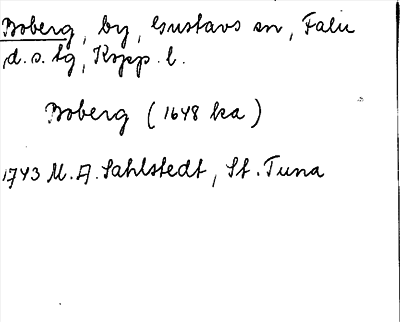 Boberg, by, Gustavs sn, Falu
d. s. tg, Kopp. l.
Boberg (1648 ka)
1743 M. A. Sahlstedt, St. Tuna